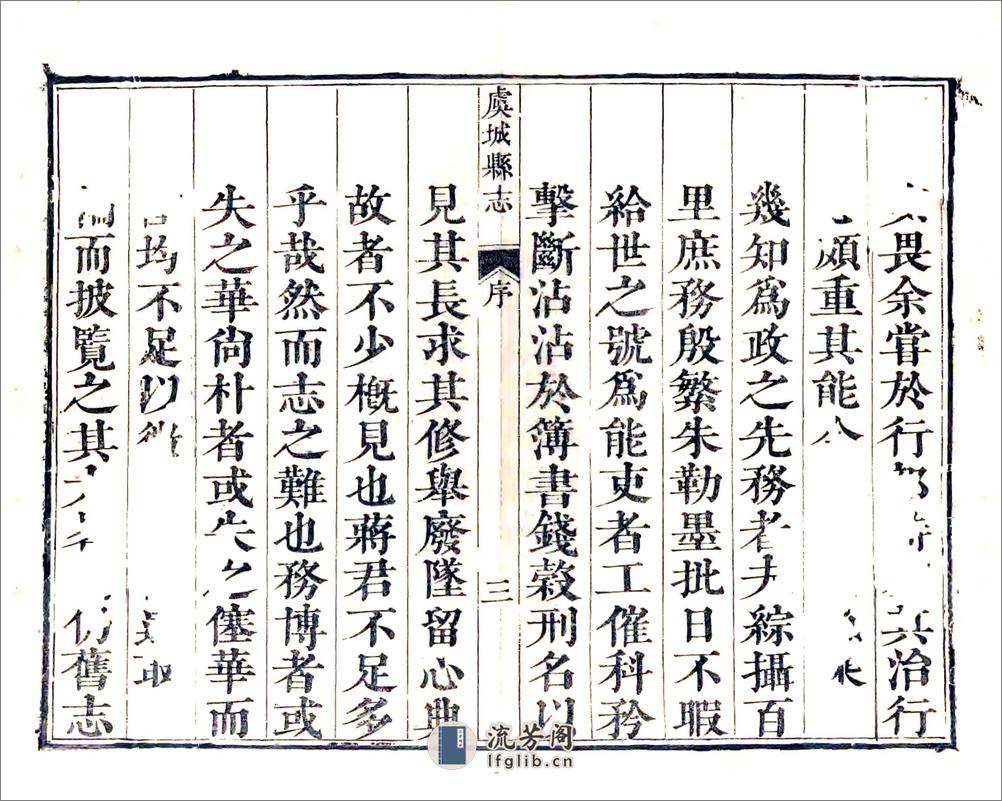 畏余嘗於行其治行
頗重其能
幾知爲政之先務者綜攝百
里庶務殷繁朱勒墨批日不暇
給世之號爲能吏者工催科矜
擊斷沾沾於簿書錢穀刑名以
虞城縣志 序 三
見其長求其修舉廢墜留心典
故者不少概見也蔣君不足多
乎哉然而志之難也務博者或
失之華尙朴者或失之僿華而
均不足以
而披覽之其仍舊志
流芳阁
lfglib.cn